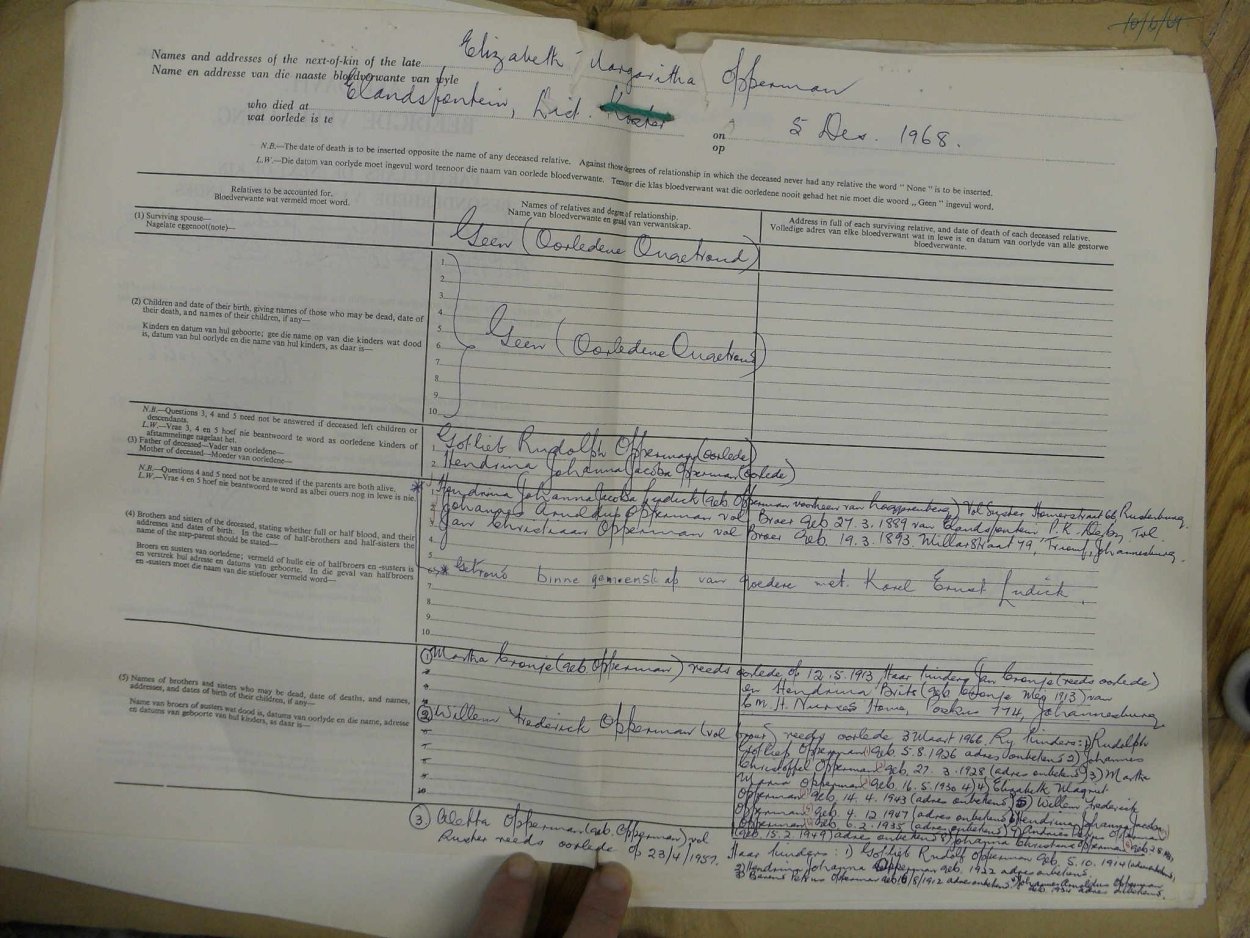 10/6/69
Names and addresses of the next-of-kin of the late Elizabeth Margaritha Opperman
Name en addresse van die naaste bloedverwante van wyle
who died at Elandsfontein, Dist. Koster on 5 Des. 1968.
wat oorlede is te op
N.B.—The date of death is to be inserted opposite the name of any deceased relative. Against those degrees of relationship in which the deceased never had any relative the word "None" is to be inserted.
L.W.—Die datum van oorlyde moet ingevul word teenoor die naam van oorlede bloedverwante. Teenoor die klas bloedverwant wat die oorledene nooit gehad het nie moet die woord „Geen" ingevul word.
Relatives to be accounted for.
Bloedverwante wat vermeld moet word.
Names of relatives and degree of relationship.
Name van bloedverwante en graad van verwantskap.
Address in full of each surviving relative, and date of death of each deceased relative.
Volledige adres van elke bloedverwant wat in lewe is en datum van oorlyde van alle gestorwe
bloedverwante.
(1) Surviving spouse—
Nagelate eggenoot(note)—
Geen (Oorledene Ongetroud)
(2) Children and date of their birth, giving names of those who may be dead, date of
their death, and names of their children, if any—
Kinders en datum van hul geboorte; gee die name op van die kinders wat dood
is, datum van hul oorlyde en die name van hul kinders, as daar is—
1.
2.
3.
4.
5.
6.
7.
8.
9.
10.
Geen (Oorledene Ongetroud)
N.B.—Questions 3, 4 and 5 need not be answered if deceased left children or
descendants.
L.W.—Vrae 3, 4 en 5 hoef nie beantwoord te word as oorledene kinders of
afstammelinge nagelaat het.
(3) Father of deceased—Vader van oorledene—
Mother of deceased—Moeder van oorledene—
1. Gotlieb Rudolph Opperman (oorlede)
2. Hendrina Johanna Jacoba Opperman (oorlede)
N.B.—Questions 4 and 5 need not be answered if the parents are both alive.
L.W.—Vrae 4 en 5 hoef nie beantwoord te word as albei ouers nog in lewe is nie.
(4) Brothers and sisters of the deceased, stating whether full or half blood, and their
addresses and dates of birth. In the case of half-brothers and half-sisters the
name of the step-parent should be stated—
Broers en susters van oorledene; vermeld of hulle eie of halfbroers en -susters is
en verstrek hul adresse en datums van geboorte. In die geval van halfbroers
en -susters moet die naam van die stiefouer vermeld word—
* 1. Hendrina Johanna Jacoba Ludick (geb. Opperman voorheen van Vol Suster Homerstraat 66, Rustenburg.
2. Johannes Arnoldus Opperman vol Broer geb 27.3.1889 van Elandsfontein, P.K. Derby, Tvl.
3. Jan Christiaan Opperman vol Broer geb. 19.3.1893 79, Triomf, Johannesburg.
4.
5.
6. * Getroud binne gemeenskap van goedere met Karel Ernst Ludick.
7.
8.
9.
10.
(5) Names of brothers and sisters who may be dead, date of deaths, and names,
addresses, and dates of birth of their children, if any—
Name van broers of susters wat dood is, datums van oorlyde en die name, adresse
en datums van geboorte van hul kinders, as daar is—
(1) Martha Cronje (geb. Opperman) reeds oorlede op 12.5.1913 Haar kinders Jan Cronje (reeds oorlede)
en Hendrina Brits (geb Cronje Mei 1913) van
Home, Posbus 774, Johannesburg
(2) Willem Frederick Opperman (vol broer) reeds oorlede 3 Maart 1966. Sy kinders: 1) Rudolph
Gotliep Opperman geb 5.8.1926 adres onbekend 2) Johannes
Christoffel Opperman geb. 27.3.1928 (adres onbekend) 3) Martha
Maria Opperman geb. 16.5.1930 4) Elizabeth
Opperman geb. 14.4.1943 (adres onbekend) 5) Willem Frederick
Opperman geb. 4.12.1947 (adres onbekend) 6) Hendrina Johanna Jacoba
Opperman geb 6.2.1935 (adres onbekend) 7) Andries Opperman
(geb 15.2.1949) adres onbekend 8) Johanna Christina Opperman
(3) Aletta Opperman (geb. Opperman) vol
Suster reeds oorlede op 23/4/1957.
Haar kinders: 1) Gotlieb Rudolf Opperman geb. 5.10.1914 (adres onbekend)
2) Hendrina Johanna Opperman geb. 1922 adres onbekend.
3) Opperman geb 10/8/1912 adres onbekend. Johannes Arnoldus Opperman
geb. adres onbekend.